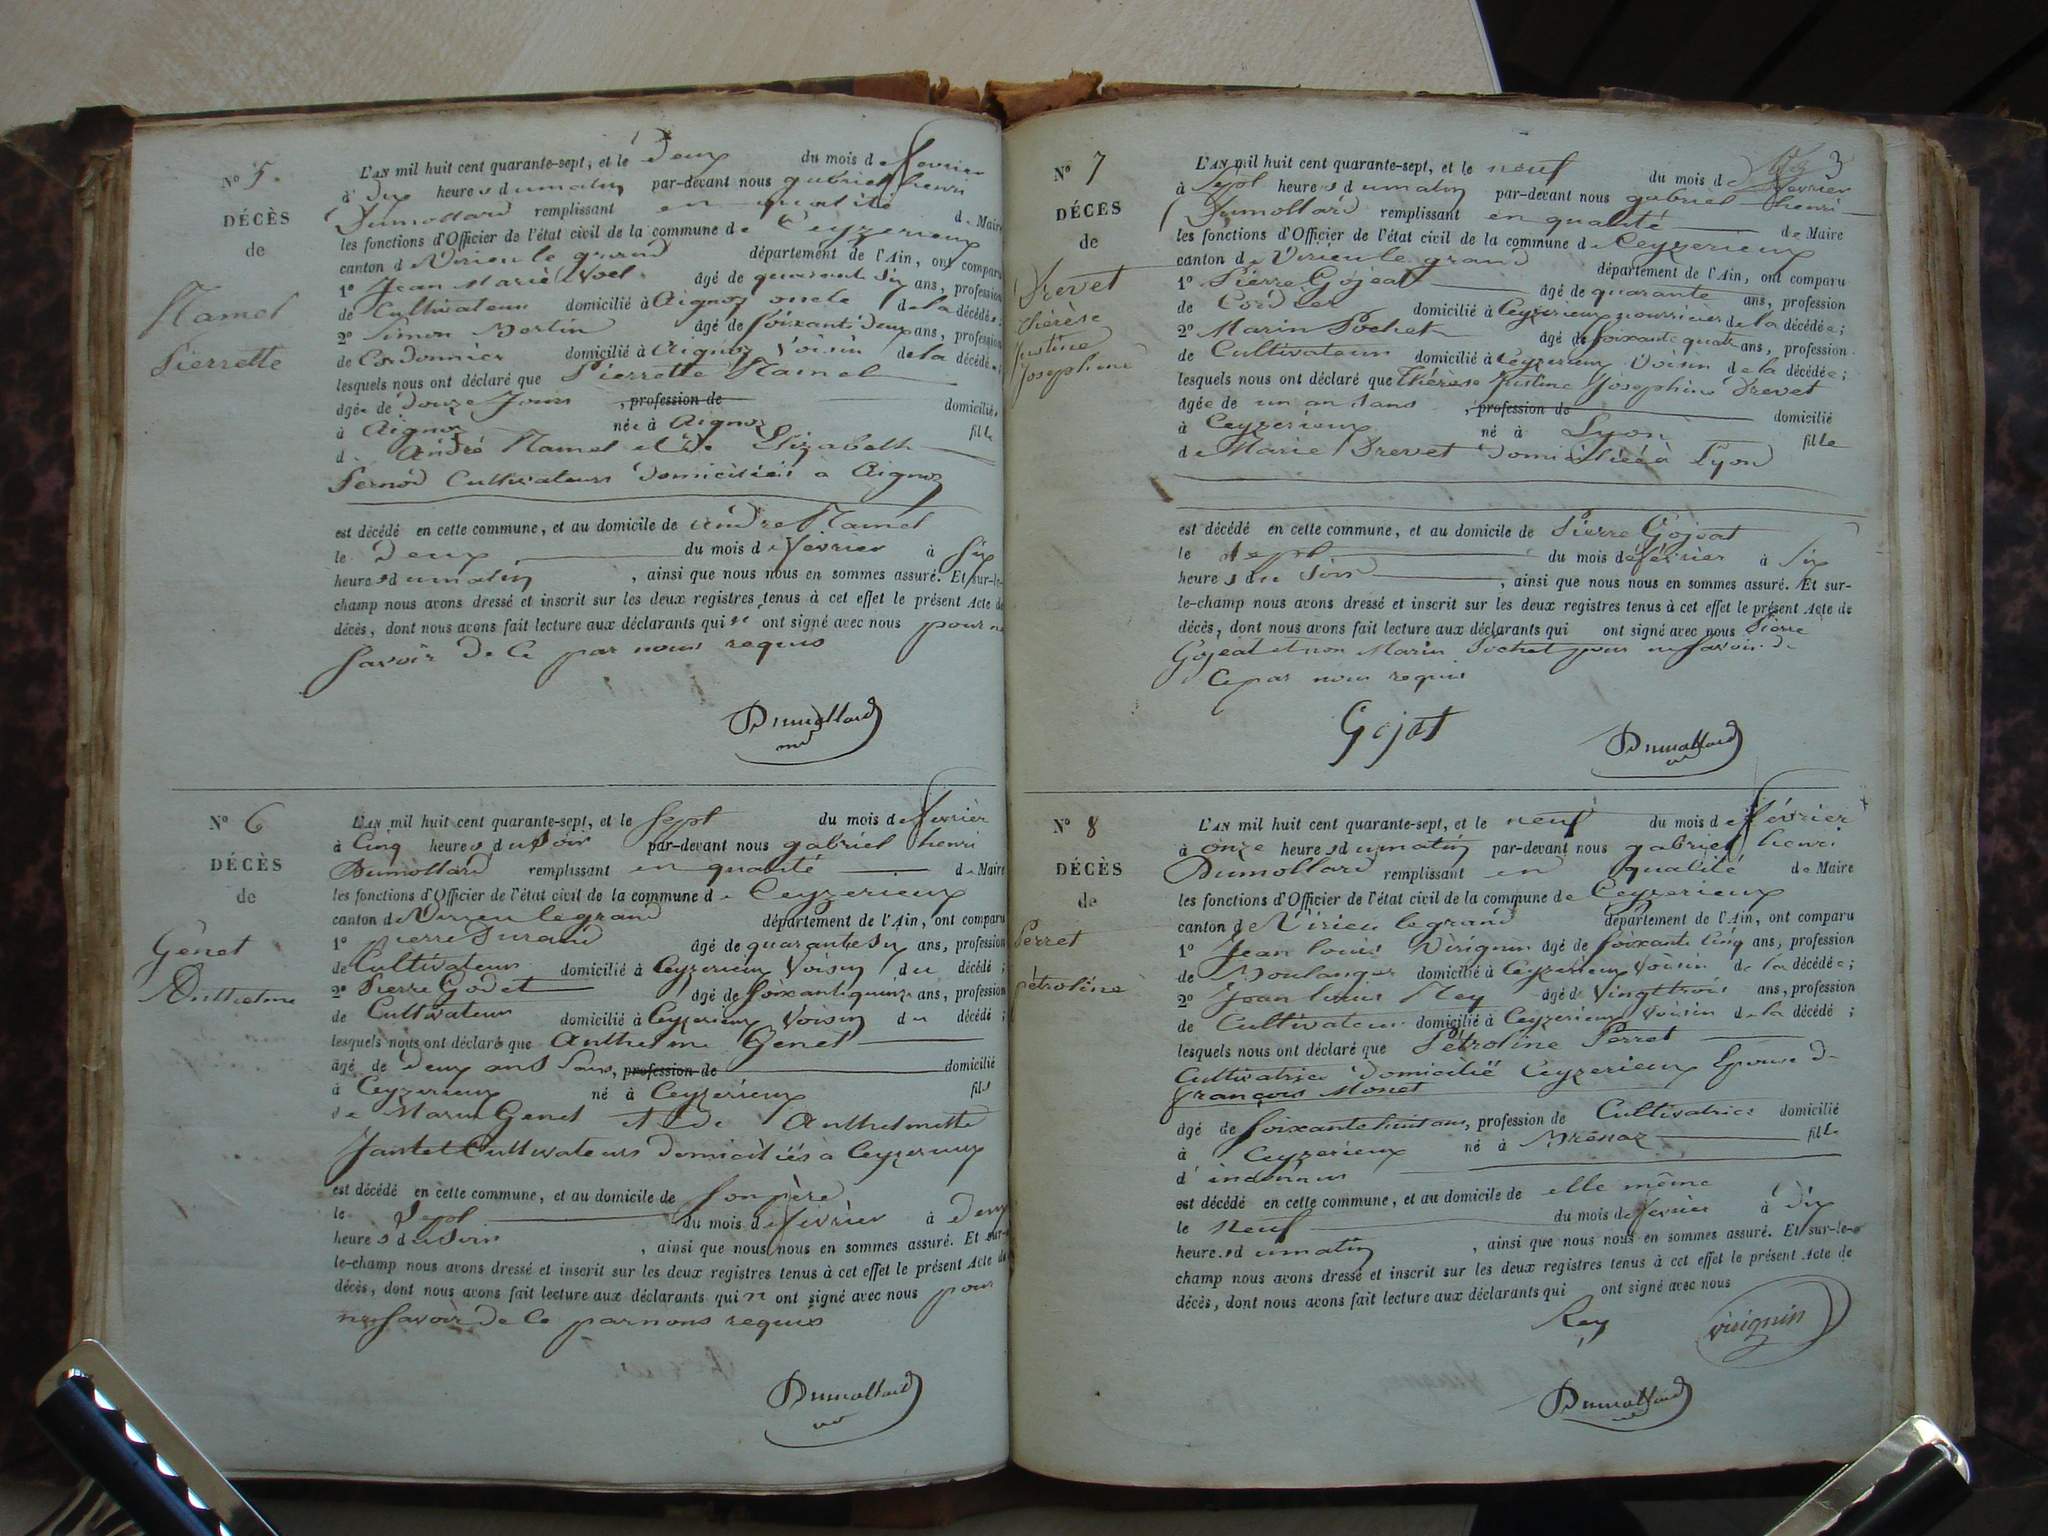 N° 5.
DÉCÈS
de
Hamel
Pierrette
L'AN mil huit cent quarante-sept, et le deux du mois de février
à dix heures du matin par-devant nous gabriel henri
Dumollard remplissant en qualité de Maire
les fonctions d'Officier de l'état civil de la commune de Ceyzerieux
canton de Virieu le grand département de l'Ain, ont comparu
1° Jean Marie âgé de quarante six ans, profession
de Cultivateur domicilié à Aignoz oncle de la décédée;
2° Simon Martin âgé de soixante deux ans, profession
de Cordonnier domicilié à Aignoz Voisin de la décédée;
lesquels nous ont déclaré que Pierrette Hamel
âgée de douze Jours , profession de domiciliée
à Aignoz née à Aignoz fille
d. André Hamel et de Elizabeth
Pernod Cultivateurs domiciliés a Aignoz
est décédé en cette commune, et au domicile de andré Hamel
le deux du mois de février à six
heures du matin , ainsi que nous nous en sommes assuré. Et sur-le-
champ nous avons dressé et inscrit sur les deux registres tenus à cet effet le présent Acte de
décès, dont nous avons fait lecture aux déclarants qui n' ont signé avec nous pour ne
savoir de ce par nous requis
Dumollard
N° 6
DÉCÈS
de
Genet
Anthelme
L'AN mil huit cent quarante-sept, et le sept du mois de février
à Cinq heures du soir par-devant nous gabriel henri
Dumollard remplissant en qualité de Maire
les fonctions d'Officier de l'état civil de la commune de Ceyzerieux
canton de Virieu le grand département de l'Ain, ont comparu
1° Pierre Durand âgé de quarante six ans, profession
de Cultivateur domicilié à Ceyzerieux Voisin du décédé;
2° Pierre Godet âgé de soixante quinze ans, profession
de Cultivateur domicilié à Ceyzerieux Voisin du décédé;
lesquels nous ont déclaré que Anthelme Genet
âgé de deux ans , profession de domicilié
à Ceyzerieux né à Ceyzerieux fils
de Marin Genet et de Anthelmette
Jantet Cultivateurs domiciliés à Ceyzerieux
est décédé en cette commune, et au domicile de son père
le sept du mois de février à deux
heures du soir , ainsi que nous nous en sommes assuré. Et sur-
le-champ nous avons dressé et inscrit sur les deux registres tenus à cet effet le présent Acte de
décès, dont nous avons fait lecture aux déclarants qui n ont signé avec nous pour
ne savoir de ce par nous requis
Dumollard
3
N° 7
DÉCÈS
de
Drevet
thérèse
Justine
Josephine
L'AN mil huit cent quarante-sept, et le neuf du mois de février
à sept heures du matin par-devant nous gabriel henri
Dumollard remplissant en qualité de Maire
les fonctions d'Officier de l'état civil de la commune de Ceyzerieux
canton de Virieu le grand département de l'Ain, ont comparu
1° Pierre Gojeat âgé de quarante ans, profession
de Cordier domicilié à Ceyzerieux nourricier de la décédée;
2° Marin Pochet âgé de soixante quatre ans, profession
de Cultivateur domicilié à Ceyzerieux Voisin de la décédée;
lesquels nous ont déclaré que thérèse Justine Josephine Drevet
âgée de un an , profession de domicilié
à Ceyzerieux né à Lyon fille
de Marie Drevet domiciliée à Lyon
est décédé en cette commune, et au domicile de Pierre Gojeat
le sept du mois de février à six
heures du soir , ainsi que nous nous en sommes assuré. Et sur-
le-champ nous avons dressé et inscrit sur les deux registres tenus à cet effet le présent Acte de
décès, dont nous avons fait lecture aux déclarants qui ont signé avec nous Pierre
Gojeat et non Marin Pochet pour ne savoir de
ce par nous requis
Gojat Dumollard
N° 8
DÉCÈS
de
Perret
pétroline
L'AN mil huit cent quarante-sept, et le neuf du mois de février
à onze heures du matin par-devant nous gabriel henri
Dumollard remplissant en qualité de Maire
les fonctions d'Officier de l'état civil de la commune de Ceyzerieux
canton de Virieu le grand département de l'Ain, ont comparu
1° Jean louis Virignin âgé de soixante cinq ans, profession
de Boulanger domicilié à Ceyzerieux Voisin de la décédée;
2° Jean louis Rey âgé de vingt trois ans, profession
de Cultivateur domicilié à Ceyzerieux Voisin de la décédé;
lesquels nous ont déclaré que Pétroline Perret
Cultivatrice domicilié Ceyzerieux Epouse de
françois Monet
âgé de soixante huit ans, profession de Cultivatrice domicilié
à Ceyzerieux né à fille
d' inconnus
est décédé en cette commune, et au domicile de elle même
le neuf du mois de février à dix
heures du matin , ainsi que nous nous en sommes assuré. Et sur-le-
champ nous avons dressé et inscrit sur les deux registres tenus à cet effet le présent Acte de
décès, dont nous avons fait lecture aux déclarants qui ont signé avec nous
Rey virignin
Dumollard